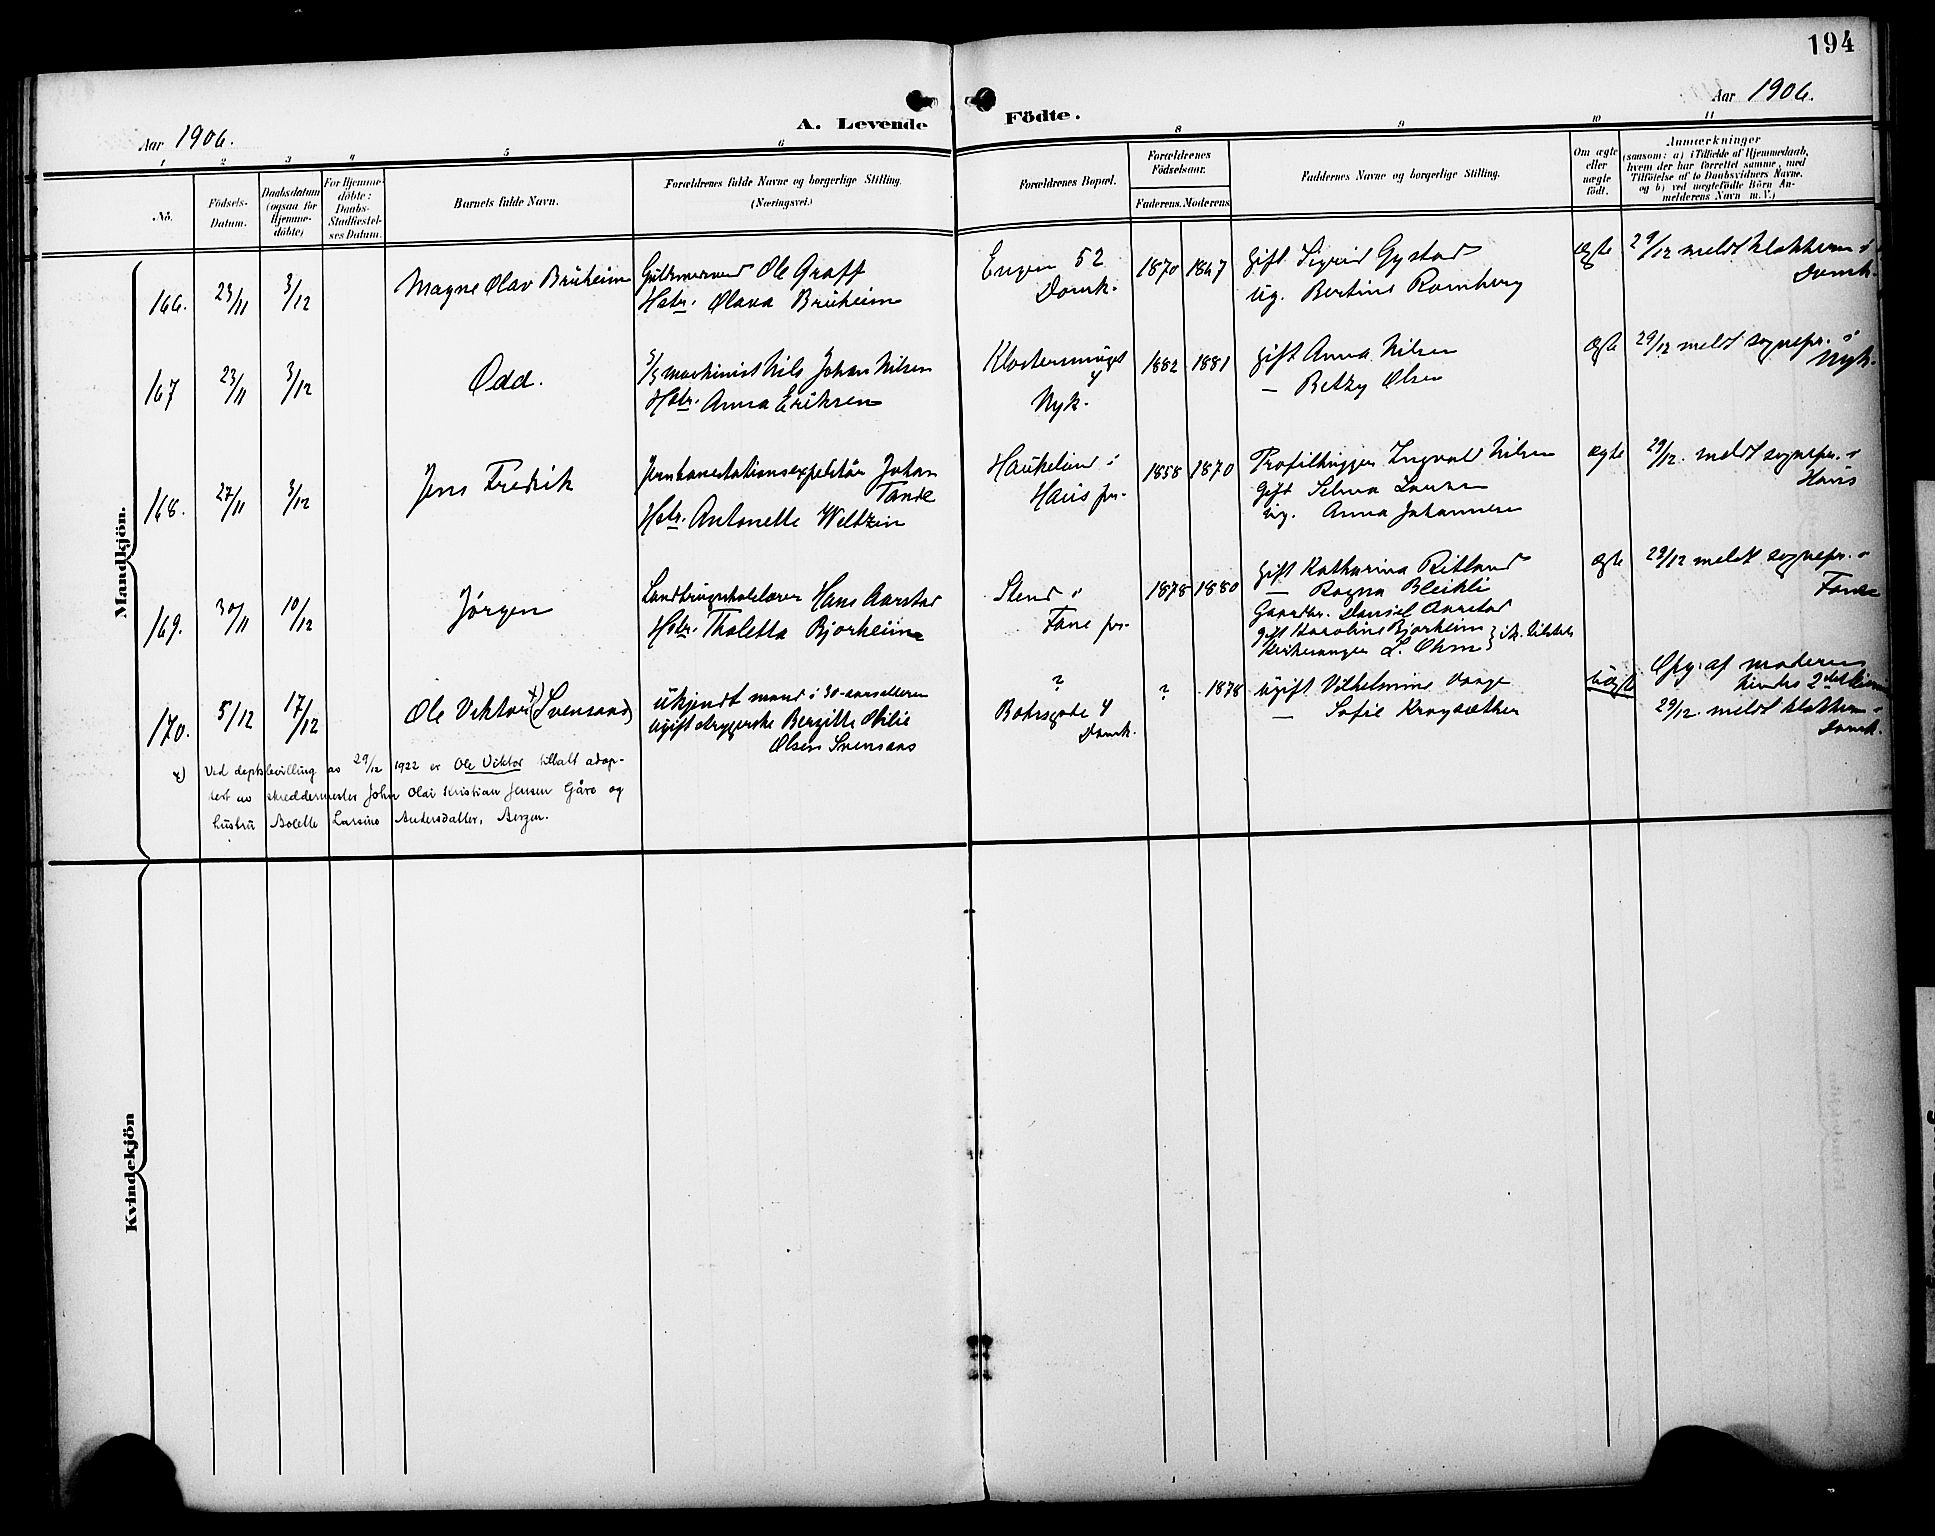 194
Aar 1906.
A. Levende
Födte.
Aar 1906.
1 2 3 4 5 6
8 9 10 11
No.
Födsels-
Datum.
Daabsdatum
(ogsaa for
Hjemme-
döbte)
For Hjemme-
döbte:
Daabs-
Stadfæstel-
ses Datum.
Barnets fulde Navn.
Forældrenes fulde Navne og borgerlige Stilling.
(Næringsvei.)
Forældrenes Bopæl.
Forældrenes
Födselsaar.
Faderens. Moderens.
Faddernes Navne og borgerlige Stilling.
Om ægte
eller
uægte
födt.
Anmærkninger
(saasom: a) i Tilfælde af Hjemmedaab,
hvem der har forrettet samme, med
Tilföielse af to Daabsvidners Navne,
og b) ved uægtefödte Börn An-
melderens Navn m. V.)
Mandkjön.
166. 23/11 3/12 Magne Olav Brüheim
Ole Graff
Hstr. Olava Brüheim
Engen 52
Domk.
1870 1867
Gift Sigrid Gystad
Ug. Bertine Romberg
ægte
29/12 meldt klokkeren i
Domk.
167 23/11 3/12 Odd.
S/S maskinist Nils Johan Nilsen
Hstr. Anna Eriksen
Klostersmuget
4
Nyk.
1882 1881
Gift Anna Nilsen
— Betzy Olsen
ægte
29/12 meldt sognepr. i
Nyk.
168. 27/11 3/12 Jens Fredrik
Jernbanestationsexpeditör Johan
Tande
Hstr. Antonette Weltzin
Haukeland i
Haus pr.
1858 1870
Ingvald Nilsen
Gift Selma Larsen
Ug. Anna Johannesen
ægte
29/12. meldt sognepr. i
Haus
169. 30/11 10/12 Jørgen
Hans Aarstad
Hstr. Tholetta Bjorheim
Stend i
Fane pr.
1878 1880
Gift Katharina Ritland
— Ragna Bleikli
Gaardbr. Daniel Aarstad
gift Karoline Bjorheim } ik. tilstede
Kirkesanger L. Ohm
ægte
29/12 meldt sognepr. i
Fane
170. 5/12 17/12 Ole Viktor x) (Svensaas)
ukjendt mand i 30-aarsalderen
ugift strygerske Bergitte Otilie
Olsen Svensaas
?
Bohrsgade 4
Domk.
? 1878
Ugift Vilhelmine Vaage
— Sofie Kragsæther
uægte
Opg. af moderen
hendes 2det barn
29/12. meldt klokkeren i
Domk.
x) Ved deptsbevilling av 29/12 1922 er Ole Viktor tillatt adop-
tert av skreddermester Johan Olai Kristian Jensen Gåre og
hustru Bolette Larsine Andersdatter, Bergen.
Kvindekjön